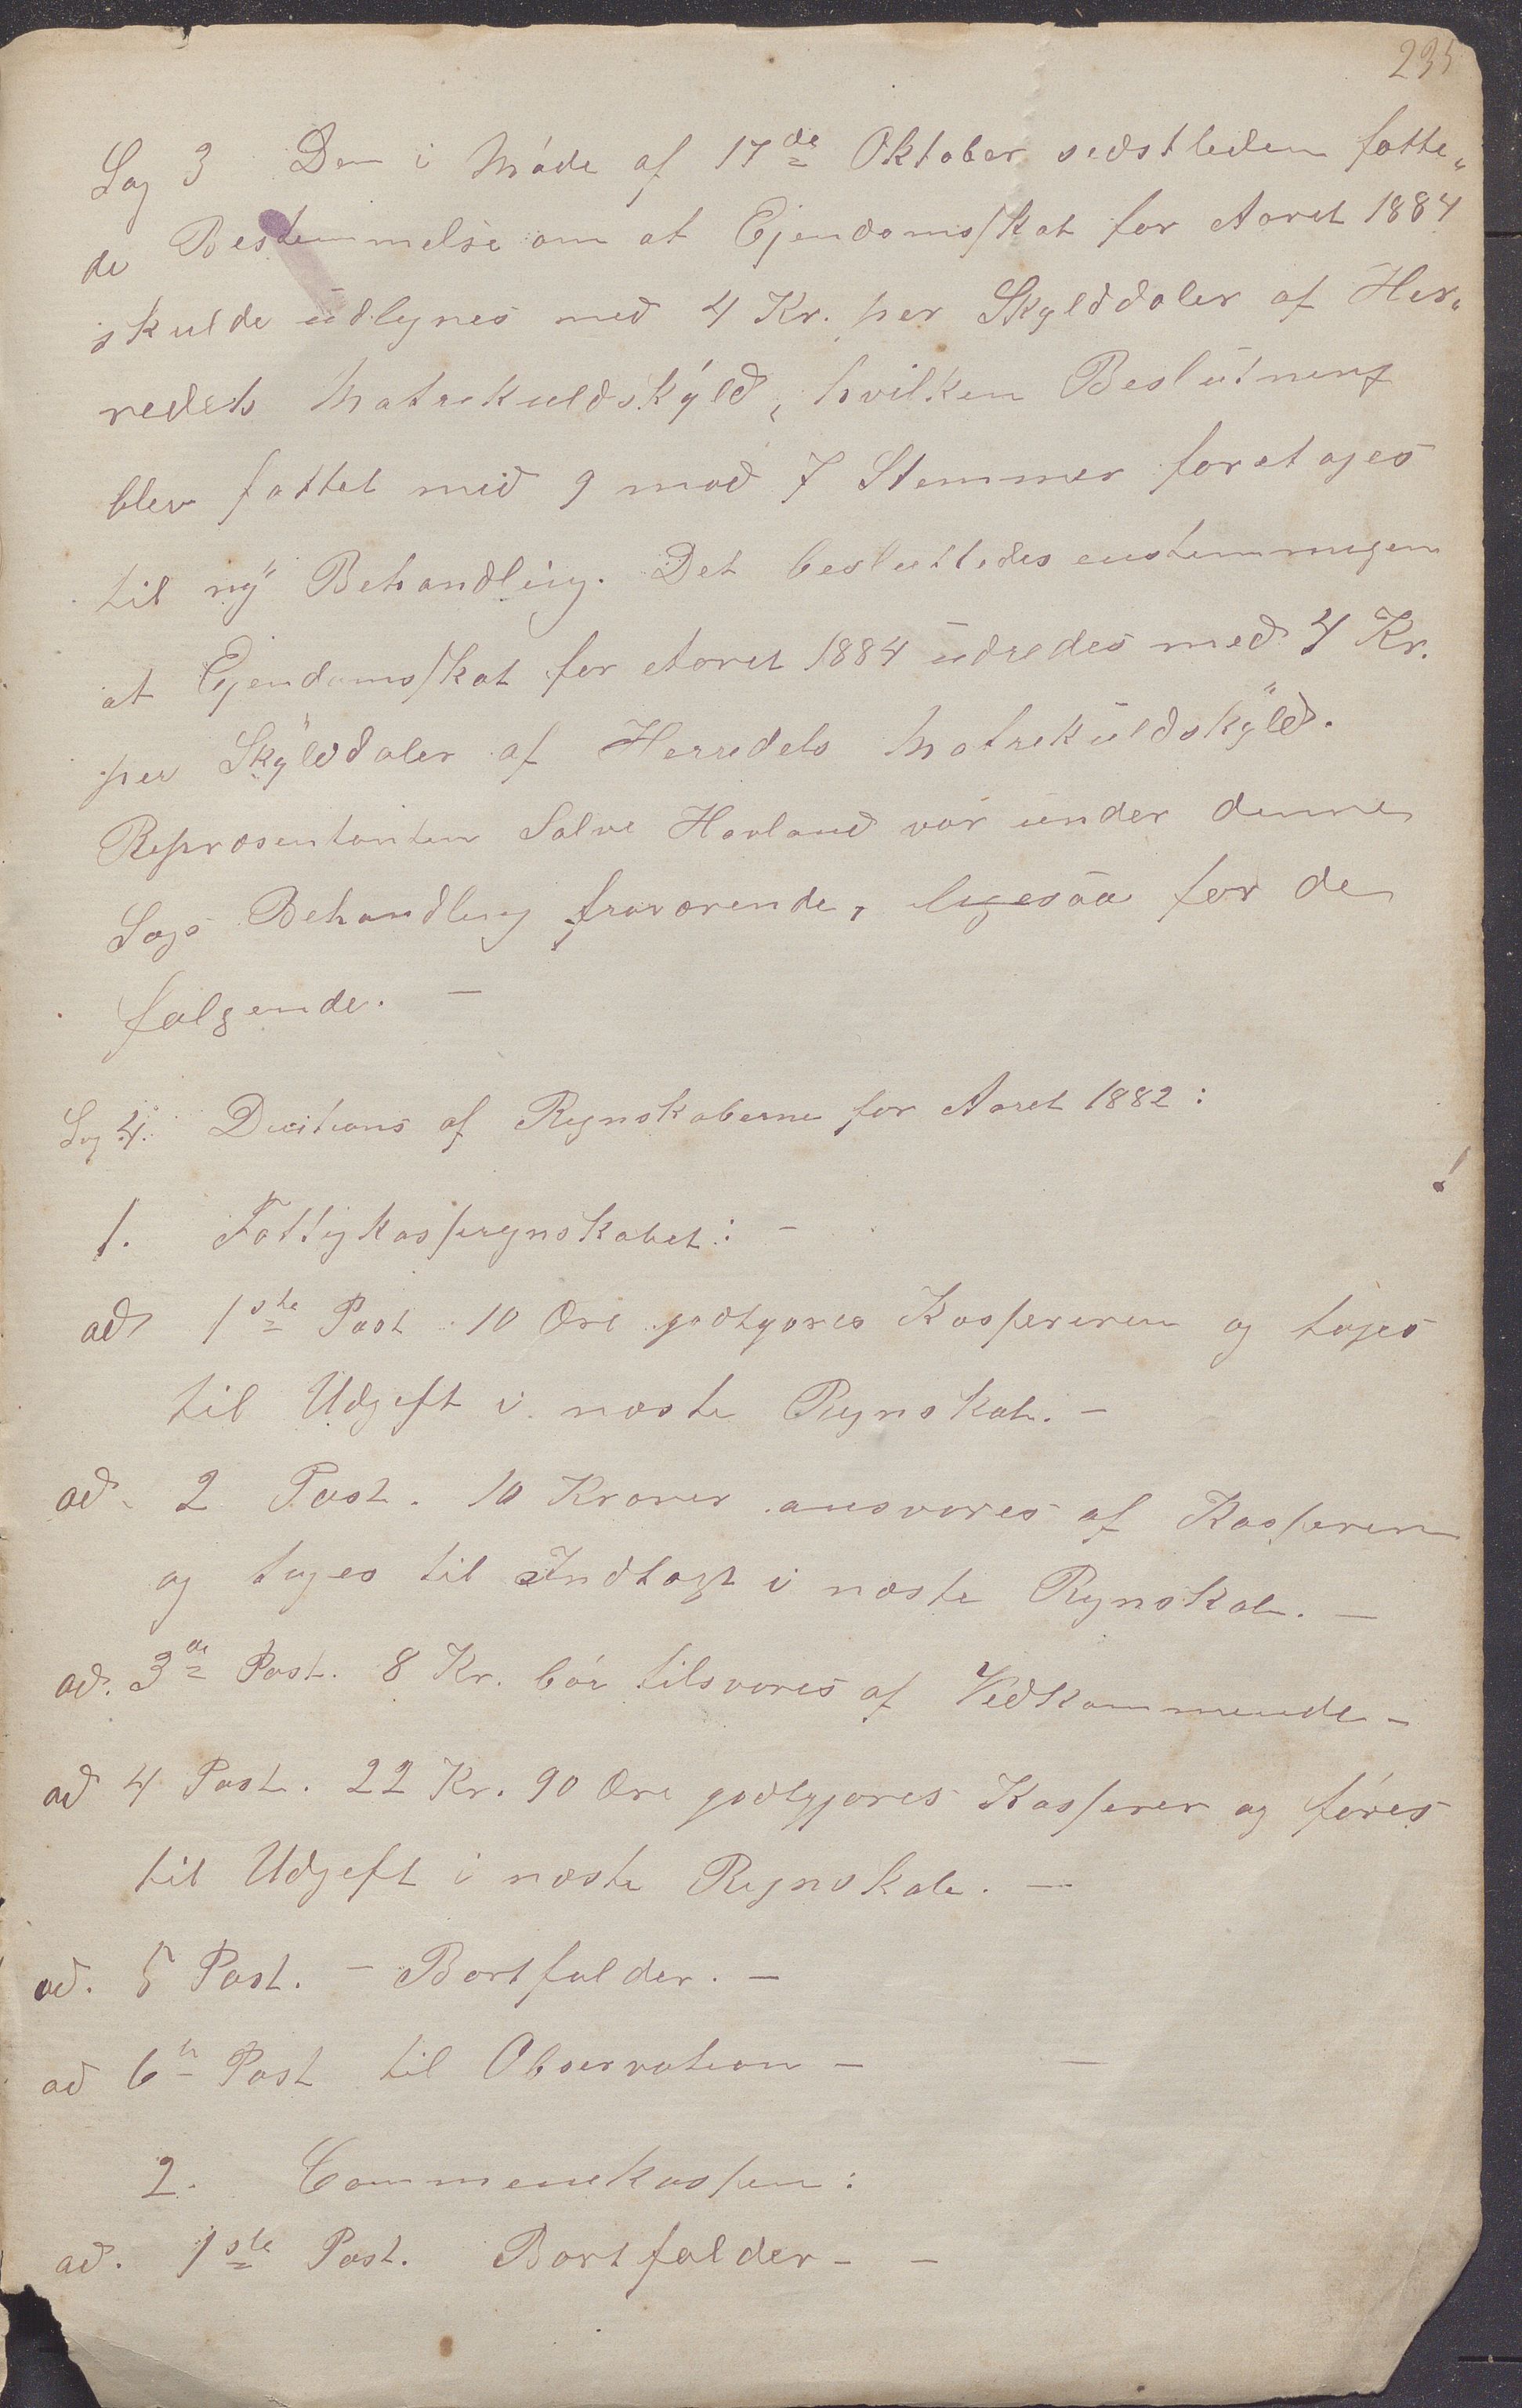 235
Sag 3 Den i Møde af 17de Oktober sidstleden fatte„
de Bestemmelse om at Ejendomsskat for Aaret 1884
skulde udlignes med 4 Kr. per Skylddaler af Her„
redets Matrikulskyld, hvilken Beslutning
blev fattet med 9 mod 7 Stemmer foretages
til ny Behandling. Det besluttedes enstemmigen
at Ejendomsskat for Aaret 1884 udredes med 4 Kr.
per Skylddaler af Herredets Matrikuldskyld.
Repræsentanten Salve Havland var under denne
Sags Behandling fraværende, ligesaa for de
følgende. —
Sag 4. Decitions af Regnskaberne for Aaret 1882:
1. Fattigkasseregnskabet: —
ad 1ste Post 10 Øre godtgøres Kassereren og tages
til Udgift i næste Regnskab. —
ad 2 Post. 10 Kroner ansvares af Kasseren
og tages til Indtægt i næste Regnskab. —
ad. 3de Post. 8 Kr. bør tilsvares af Vedkommende —
ad 4 Post. 22 Kr. 90 Øre godtgjøres Kasserer og føres
til Udgift i næste Regnskab. —
ad. 5 Post. — Bortfalder. —
ad 6te Post til Observation — —
2. Communekassen:
ad. 1ste Post. Bortfalder — —